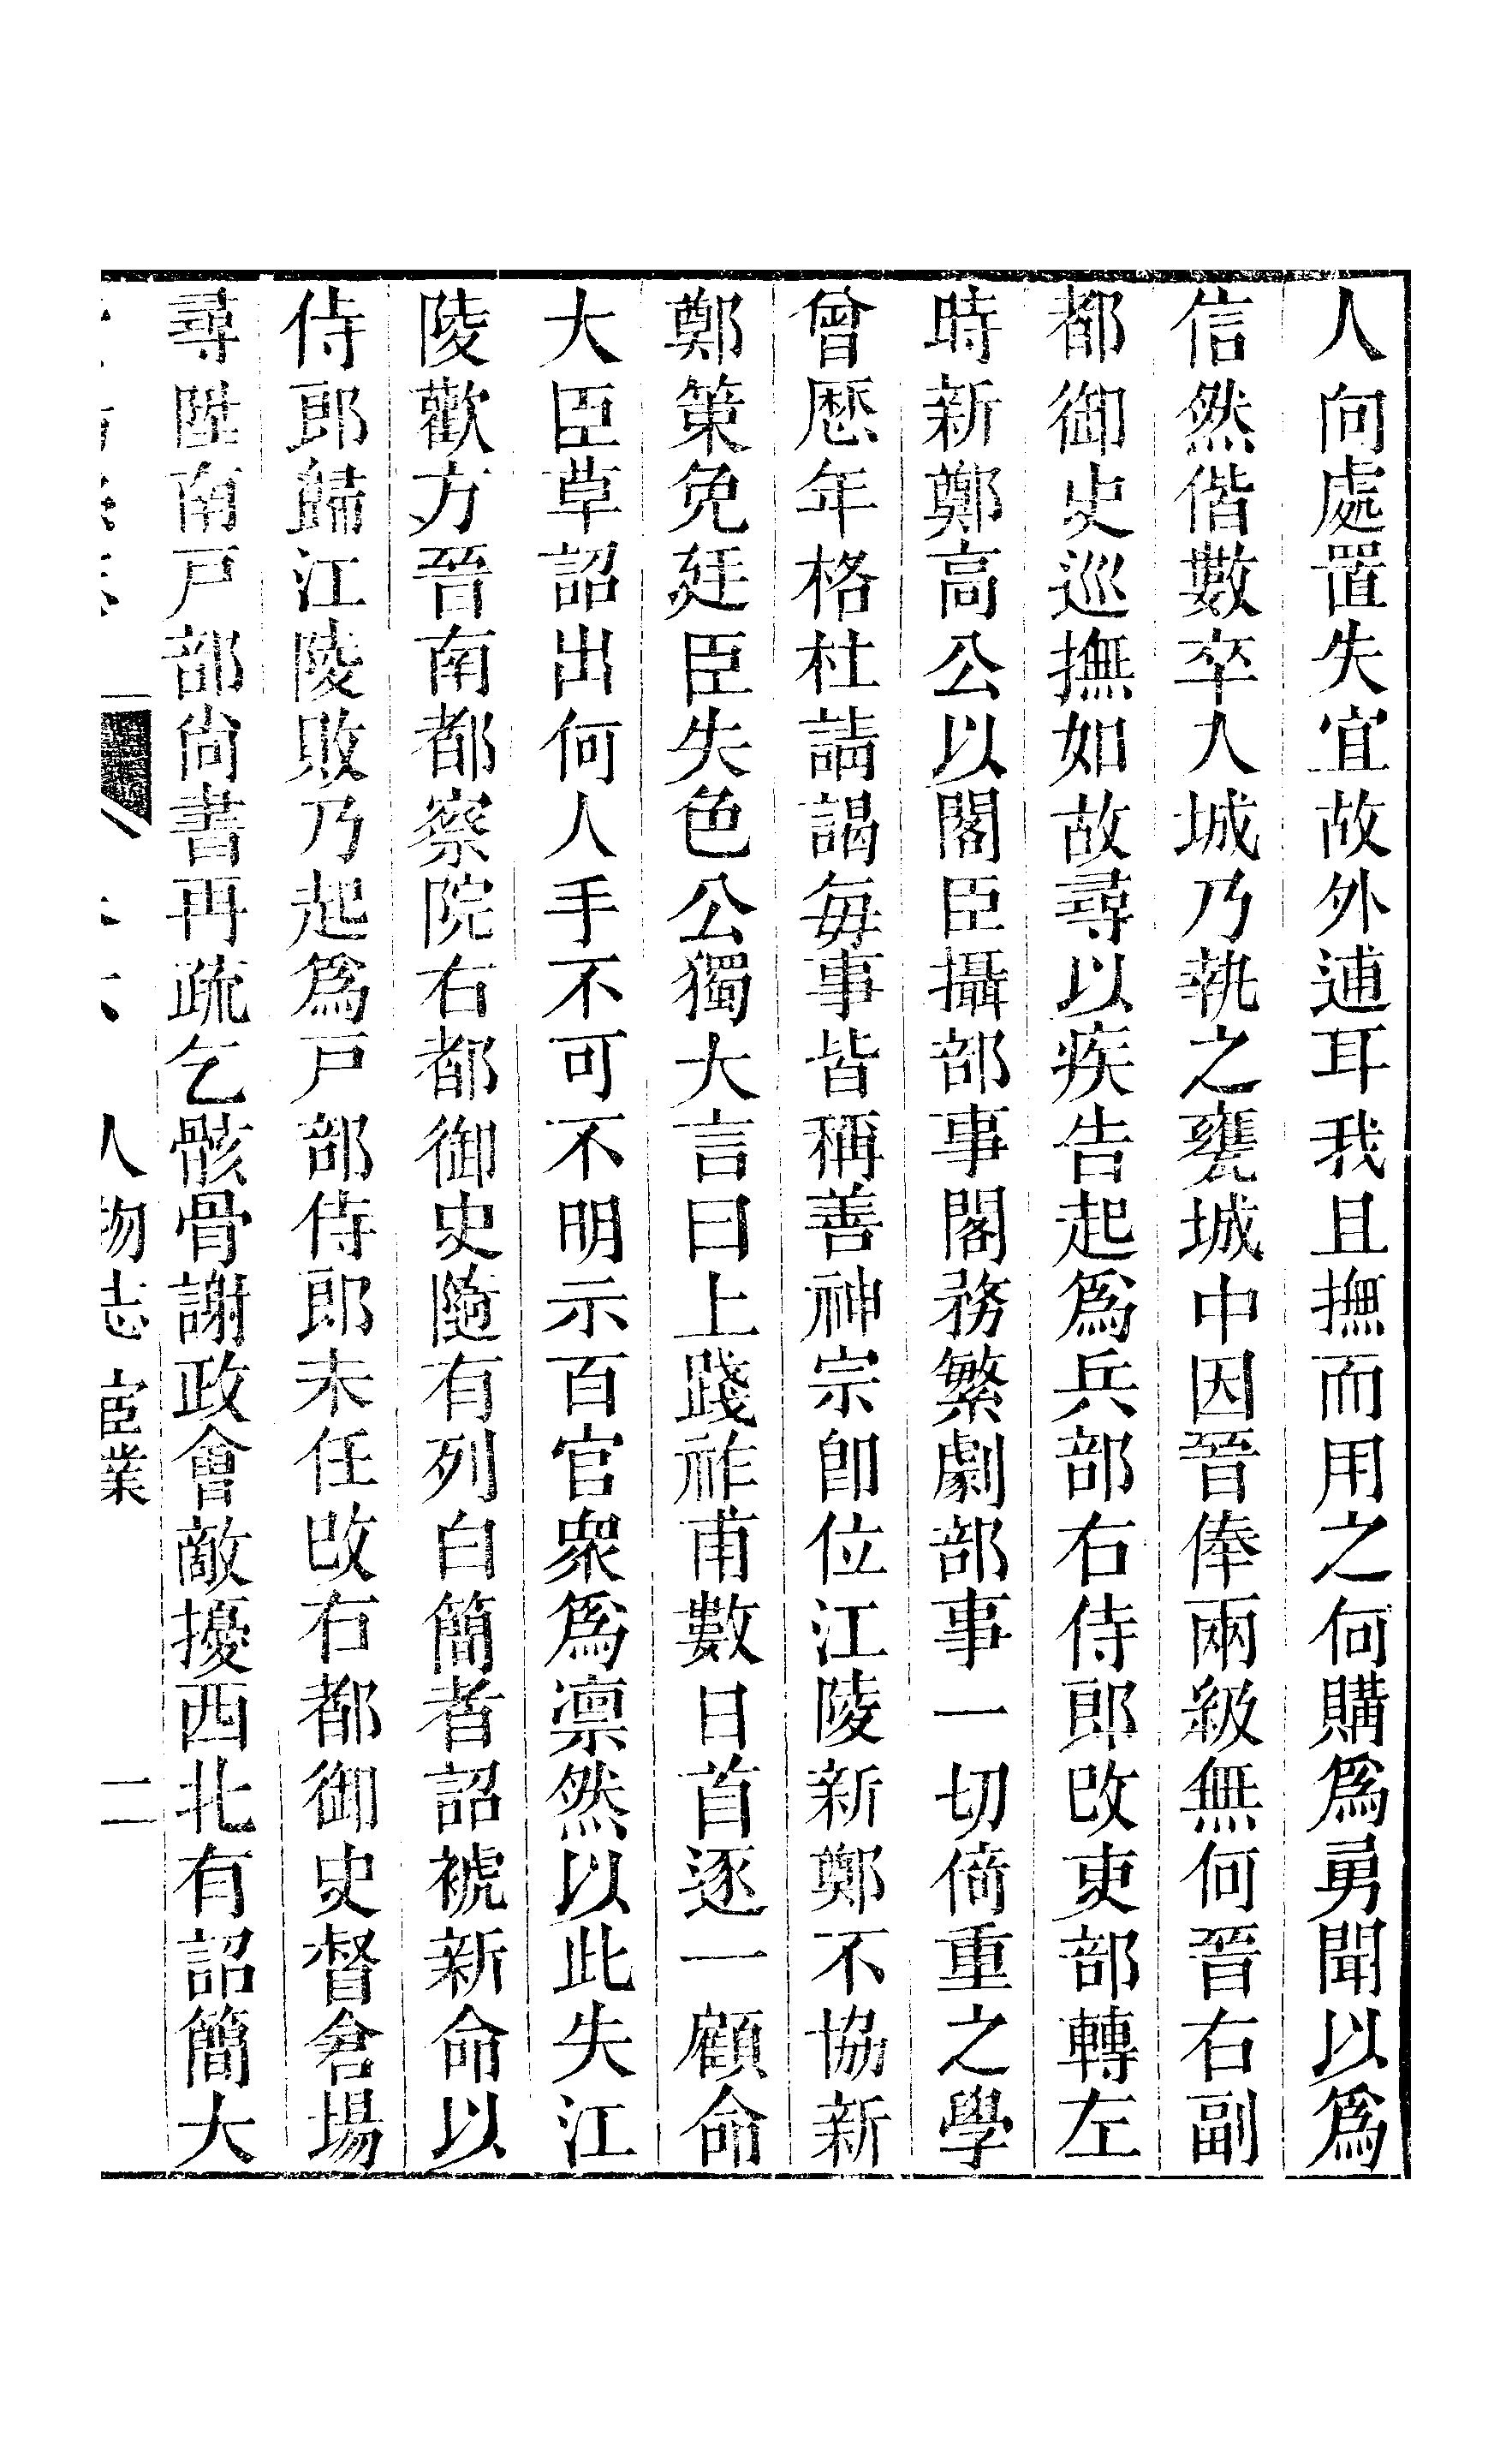 人向處置失宜故外逋耳我且撫而用之何購爲勇聞以爲
信然偕數卒入城乃執之甕城中因晉俸兩級無何晉右副
都御史巡撫如故尋以疾告起爲兵部右侍郎改吏部轉左
時新鄭高公以閣臣攝部事閣務繁劇部事一切倚重之學
曾歷年格杜請謁每事皆稱善神宗卽位江陵新鄭不協新
鄭策免廷臣失色公獨大言曰上踐祚甫數日首逐一顧命
大臣草詔出何人手不可不明示百官衆爲凛然以此失江
陵歡方晉南都察院右都御史隨有列白簡者詔褫新命以
侍郎歸江陵敗乃起爲戸部侍郎未任改右都御史督倉場
尋陞南戸部尚書再疏乞骸骨謝政會敵擾西北有詔簡大
人物志 宦業 二